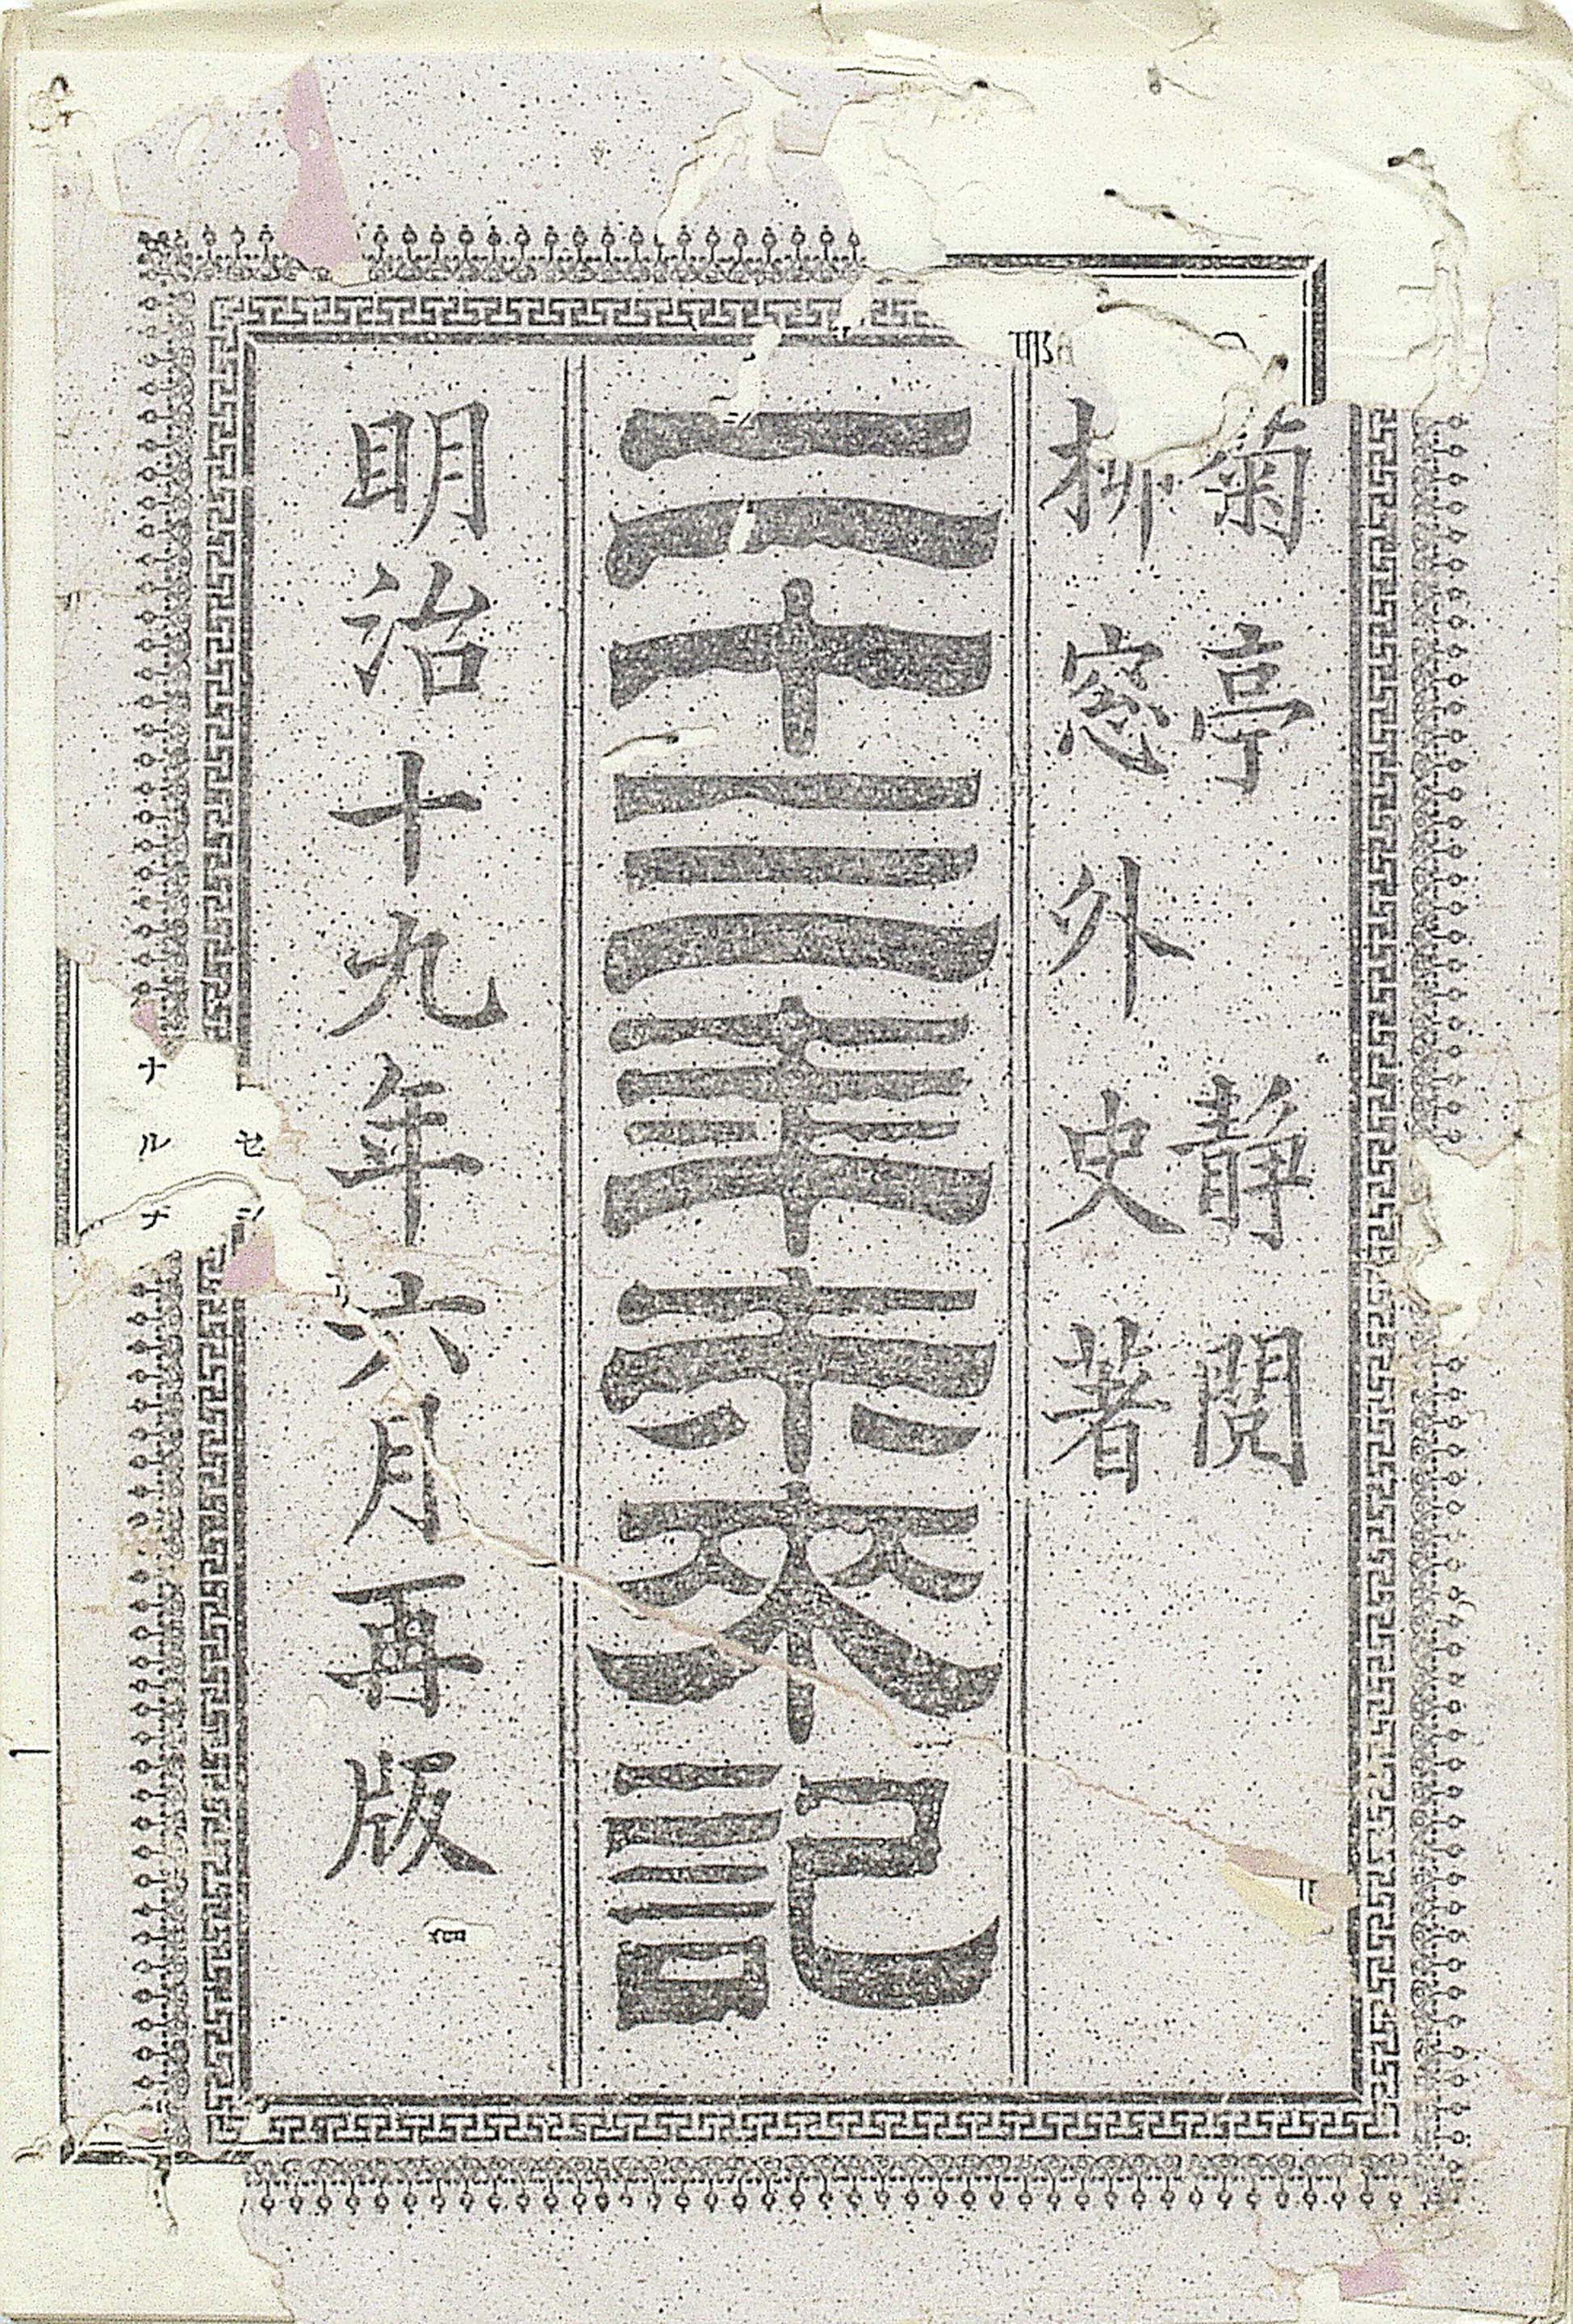 菊亭静閲
柳窓外史著
二十三年未來記
明治十九年六月再版
セ
ナルナ